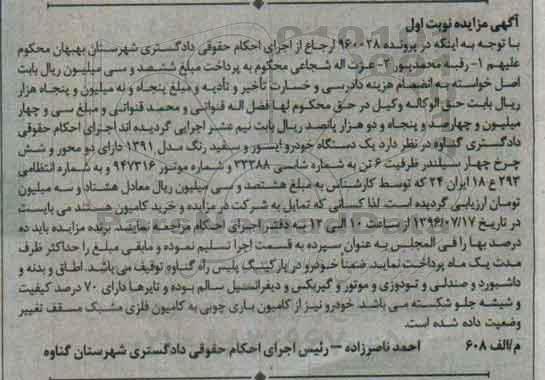 آگهی مزایده نوبت اول
با توجه به اینکه در پرونده ۹۶۰۰۲۸ ارجاع از اجرای احکام حقوقی دادگستری شهرستان بهبهان محکوم
علیهم ۱- رقیه محمدپور ۲- عزت اله شجاعی محکوم به پرداخت مبلغ ششصد و سی میلیون ریال بابت
اصل خواسته به انضمام هزینه دادرسی و خسارت تأخیر و تأدیه و مبلغ پنجاه و نه میلیون و پنجاه هزار
ریال بابت حق الوکاله وکیل در حق محکوم لها فضل اله قنواتی و محمد قنواتی و مبلغ سی و چهار
میلیون و چهارصد و پنجاه و دو هزار پانصد ریال بابت نیم عشر اجرایی گردیده اند اجرای احکام حقوقی
دادگستری گناوه در نظر دارد یک دستگاه خودرو ایسوز و سفید رنگ مدل ۱۳۹۱ دارای دو محور و شش
چرخ چهار سیلندر ظرفیت ۶ تن به شماره شاسی ۳۳۳۸۸ و شماره موتور ۹۴۷۳۱۶ و به شماره انتظامی
۲۹۳ ع ۱۸ ایران ۲۴ که توسط کارشناس به مبلغ هشتصد و سی میلیون ریال معادل هشتاد و سه میلیون
تومان ارزیابی گردیده است. لذا کسانی که تمایل به شرکت در مزایده و خرید کامیون هستند می بایست
در تاریخ ۱۳۹۶/۰۷/۱۷ از ساعت ۱۰ الی ۱۲ به دفتر اجرای احکام مراجعه نمایند. برنده مزایده باید ده
درصد بها را فی المجلس به عنوان سپرده به قسمت اجرا تسلیم نموده و مابقی مبلغ را حداکثر ظرف
مدت یک ماه پرداخت نماید. ضمناً خودرو در پارکینگ پلیس راه گناوه توقیف می باشد. اطاق و بدنه و
داشبورد و صندلی و تودوزی و موتور و گیربکس و دیفرانسیل سالم بوده و تایرها دارای ۷۰ درصد کیفیت
و شیشه جلو شکسته می باشد. خودرو نیز از کامیون باری چوبی به کامیون فلزی مشبک مسقف تغییر
وضعیت داده شده است.
م/الف ۶۰۸ احمد ناصرزاده – رئیس اجرای احکام حقوقی دادگستری شهرستان گناوه